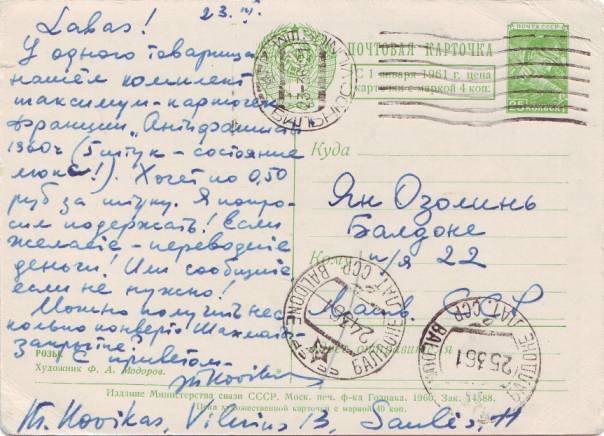 Labas!
23. IV.
У одного товарища
нашел комплект
максимум-карточек
Франции „Антифашисты
1960 г (5 штук - состояние
люкс!). Хочет по 0,50
руб за штуку. Я попро-
сил подержать! Если
желаете - переводите
деньги! Или сообщите
если не нужно!
Можно получить нес-
колько конверто Шахматы
закрытие?
С приветом.
РОЗЫ
Художник Ф. А. Модоров.
ПОЧТОВАЯ КАРТОЧКА
С 1 января 1961 г. цена
карточки с маркой 4 коп.
ПОЧТА СССР
25 КОПЕЕК
ВИЛЬНЮС
Куда
Ян Озолинь
Балдоне
Кому
п/я 22
Латв. ССР
BALDONE ЛАТ. ССР
24361
БАЛДОНЕ
BALDONE ЛАТ. ССР
25361
БАЛДОНЕ
Издание Министерства связи СССР. Моск. печ. ф-ка Гознака. 1960. Зак. 14588.
Цена художественной карточки с маркой 40 коп.
Vilnius 13, Saulės 11